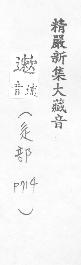 精嚴新集大藏音
音
（辵部
P714
）